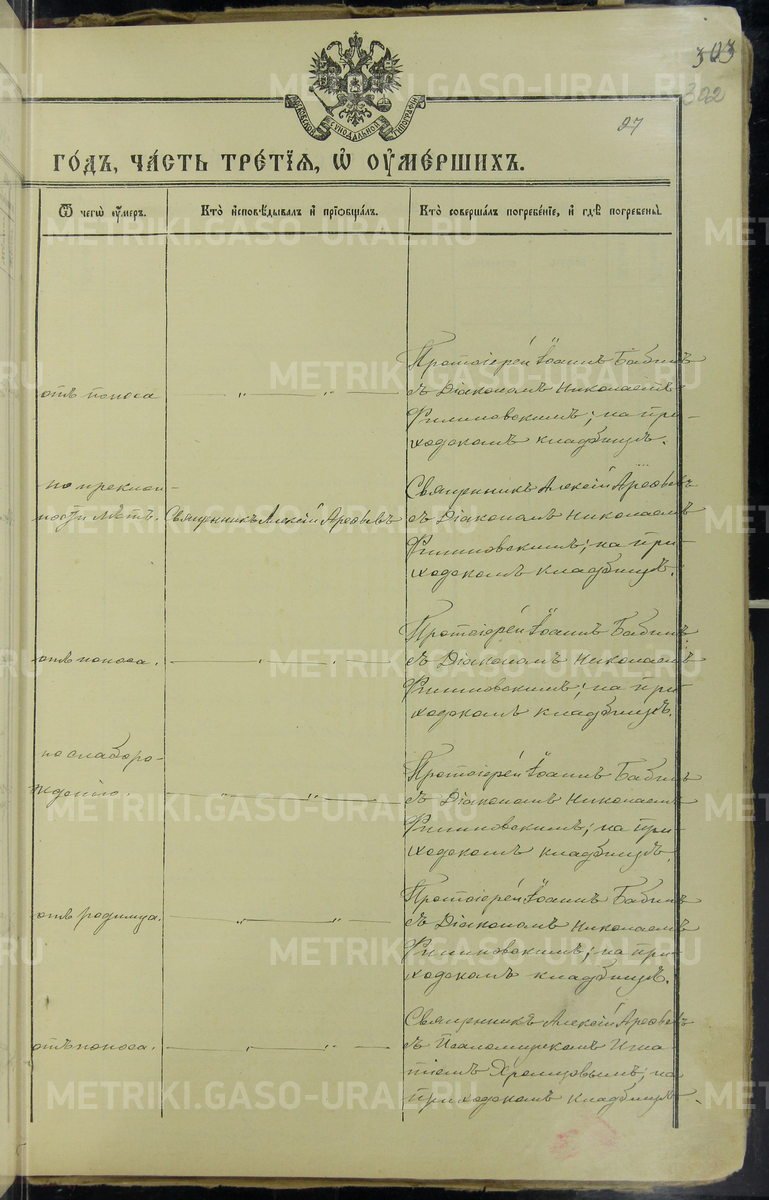 303
302
27
МОСКОВСКОЙ СУНОДАЛЬНОЙ ТИПОГРАФІИ
ГО́ДЪ, ЧА́СТЬ ТРЕ́ТІЯ, Ѽ ОУ҆МЕ́РШИХЪ.
Ѿ чегѡ̀ оу҆́меръ.
Кто̀ и҆сповѣ́дывалъ и҆ пріѡбща́лъ.
Кто̀ соверша́лъ погребе́ніе, и҆ гдѣ̀ погребены̀.
отъ поноса
— „ — „ —
Протоіерей Іоаннъ Бабинъ
съ Діакономъ Николаемъ
Филиповскимъ; на при-
ходскомъ кладбищѣ.
по преклон-
ности лѣтъ.
Священникъ Алексій Арефьевъ
Священникъ Алексій Арефьевъ
съ Діакономъ Николаемъ
Филиповскимъ; на при-
ходскомъ кладбищѣ.
отъ поноса.
— „ — „ —
Протоіерей Іоаннъ Бабинъ
съ Діакономъ Николаемъ
Филиповскимъ; на при-
ходскомъ кладбищѣ.
по слаборо-
жденію.
— „ — „ —
Протоіерей Іоаннъ Бабинъ
съ Діакономъ Николаемъ
Филиповскимъ; на при-
ходскомъ кладбищѣ.
отъ родимца.
— „ — „ —
Протоіерей Іоаннъ Бабинъ
съ Діакономъ Николаемъ
Филиповскимъ; на при-
ходскомъ кладбищѣ.
отъ поноса.
— „ — „ —
Священникъ Алексій Арефьевъ
съ Псаломщикомъ Игна
тіемъ Хромцовымъ; на
приходскомъ кладбищѣ.
METRIKI.GASO-URAL.RU